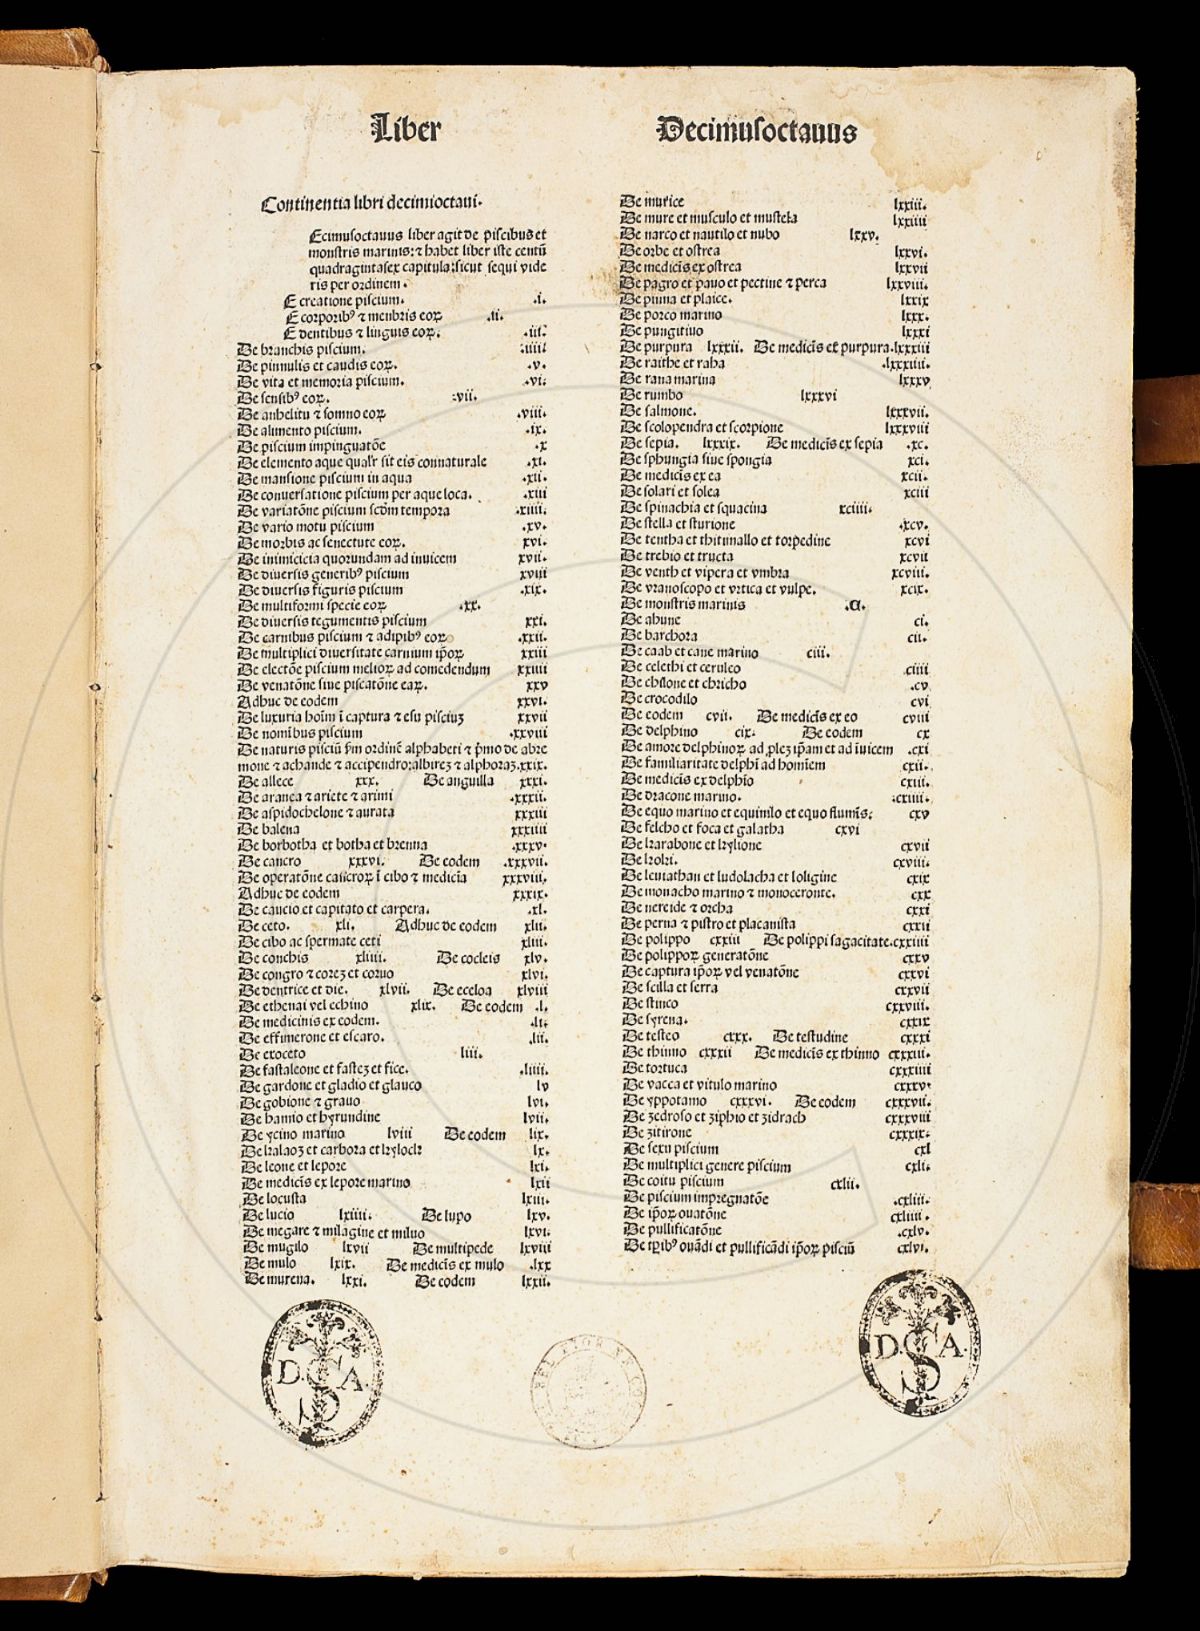 Liber
Decimusoctauus
Continentia libri decimioctaui.
Ecimusoctauus liber agit de piscibus et
monstris marinis: ⁊ habet liber iste centũ
quadragintasex capitula: sicut sequi vide
ris per ordinem.
E creatione piscium. .i.
E corporibꝰ ⁊ menbris eoꝝ .ii.
E dentibus ⁊ linguis eoꝝ. .iii.
De branchis piscium. .iiii.
De pinnulis et caudis eoꝝ. .v.
De vita et memoria piscium. .vi.
De sensibꝰ eoꝝ. .vii.
De anhelitu ⁊ somno eoꝝ .viii.
De alimento piscium. .ix.
De piscium impinguatõe .x
De elemento aque qual'r sit eis connaturale .xi.
De mansione piscium in aqua .xii.
De conuersatione piscium per aque loca. .xiii
De variatõne piscium scđm tempora .xiiii.
De vario motu piscium .xv.
De morbis ac senectute eoꝝ. xvi.
De inimicicia quorundam ad inuicem xvii.
De diuersis generibꝰ piscium xviii
De diuersis figuris piscium .xix.
De multiformi specie eoꝝ .xx.
De diuersis tegumentis piscium xxi.
De carnibus piscium ⁊ adipibꝰ eoꝝ .xxii.
De multiplici diuersitate carnium ip̃oꝝ xxiii
De electõe piscium melioꝝ ad comedendum xxiiii
De venatõne siue piscatõne eaꝝ. xxv
Adhuc de eodem xxvi.
De luxuria hoĩm ĩ captura ⁊ esu pisciuꝫ xxvii
De nomĩbus piscium .xxviii
De naturis pisciũ p̃m ordinẽ alphabeti ⁊ p̃mo de abre
mone ⁊ achande ⁊ accipendro: albirez ⁊ alphoraꝫ.xxix.
De allece xxx. De anguilla xxxi.
De aranea ⁊ ariete ⁊ arimi .xxxii.
De aspidochelone ⁊ aurata xxxiii
De balena xxxiiii
De borbotha et botha et brenna .xxxv.
De cancro xxxvi. De eodem .xxxvii.
De operatõne cãcroꝝ ĩ cibo ⁊ medicĩa xxxviii.
Adhuc de eodem xxxix.
De caucio et capitato et carpera. .xl.
De ceto. xli. Adhuc de eodem xlii.
De cibo ac spermate ceti xliii.
De conchis xliiii. De cocleis xlv.
De congro ⁊ coreꝫ et coruo xlvi.
De dentrice et die. xlvii. De eceloa xlviii
De ethenai vel echino xlix. De eodem .l.
De medicinis ex eodem. .li.
De effimerone et escaro. .lii.
De exoceto liii.
De fastaleone et fasteꝫ et fice. .liiii.
De gardone et gladio et glauco lv
De gobione ⁊ grauo lvi.
De hamio et hyrundine lvii.
De ycino marino lviii De eodem lix.
De kalaoꝫ et carbora et kylock lx.
De leone et lepore lxi.
De medicĩs ex lepore marino lxii
De locusta lxiii.
De lucio lxiiii. De lupo lxv.
De megare ⁊ milagine et miluo lxvi.
De mugilo lxvii De multipede lxviii
De mulo lxix. De medicĩs ex mulo .lxx
De murena. lxxi. De eodem lxxii.
De murice lxxiii.
De mure et musculo et mustela lxxiiii
De narco et nautilo et nubo lxxv.
De orbe et ostrea lxxvi.
De medicĩs ex ostrea lxxvii
De pagro et pauo et pectine ⁊ perca lxxviii.
De pinna et plaice. lxxix
De porco marino lxxx.
De pungitiuo lxxxi
De purpura lxxxii. De medicĩs ex purpura.lxxxiii
De raithe et raha .lxxxiiii.
De rana marina lxxxv
De rumbo lxxxvi
De salmone. lxxxvii.
De scolopendra et scorpione lxxxviii
De sepia. lxxxix. De medicĩs ex sepia .xc.
De sphungia siue spongia xci.
De medicĩs ex ea xcii.
De solari et solea xciii
De spinachia et squacina xciiii.
De stella et sturione .xcv.
De tentha et thitimallo et torpedine xcvi
De trebio et tructa xcvii
De venth et vipera et vmbra xcviii.
De vranoscopo et vrtica et vulpe. xcix.
De monstris marinis .C.
De abune ci.
De barchora cii.
De caab et cane marino ciii.
De celethi et ceruleo ciiii
De chilone et chricho .cv
De crocodilo cvi
De eodem cvii. De medicĩs ex eo cviii
De delphino cix. De eodem cx
De amore delphinoꝝ ad ꝓleꝫ ip̃am et ad ĩuicem .cxi
De familiaritate delphĩ ad homĩem cxii.
De medicĩs ex delphĩo cxiii.
De dracone marino. .cxiiii.
De equo marino et equinilo et equo flumĩs: cxv
De felcho et foca et galatha cxvi
De karabone et kylione cxvii
De koki. cxviii.
De leuiathan et ludolacha et loligine cxix
De monacho marino ⁊ monoceronte. cxx
De nereide ⁊ orcha cxxi
De perna ⁊ pistro et placanista cxxii
De polippo cxxiii De polippi sagacitate.cxxiiii
De polippoꝝ generatõne cxxv
De captura ip̃oꝝ vel venatõne cxxvi
De scilla et serra cxxvii
De stinco cxxviii.
De syrena. cxxix
De testeo cxxx. De testudine cxxxi
De thinno cxxxii De medicĩs ex thinno cxxxiii.
De tortuca cxxxiiii
De vacca et vitulo marino cxxxv.
De yppotamo cxxxvi. De eodem cxxxvii.
De zedroso et ziphio et zidrach cxxxviii
De zitirone cxxxix.
De sexu piscium cxl
De multiplici genere piscium cxli.
De coitu piscium cxlii.
De piscium impregnatõe .cxliii.
De ip̃oꝝ ouatõne cxliiii.
De pullificatõne .cxlv.
De tp̃ibꝰ ouãdi et pullificãdi ip̃oꝝ pisciũ cxlvi.
D. S A.
D. S A.